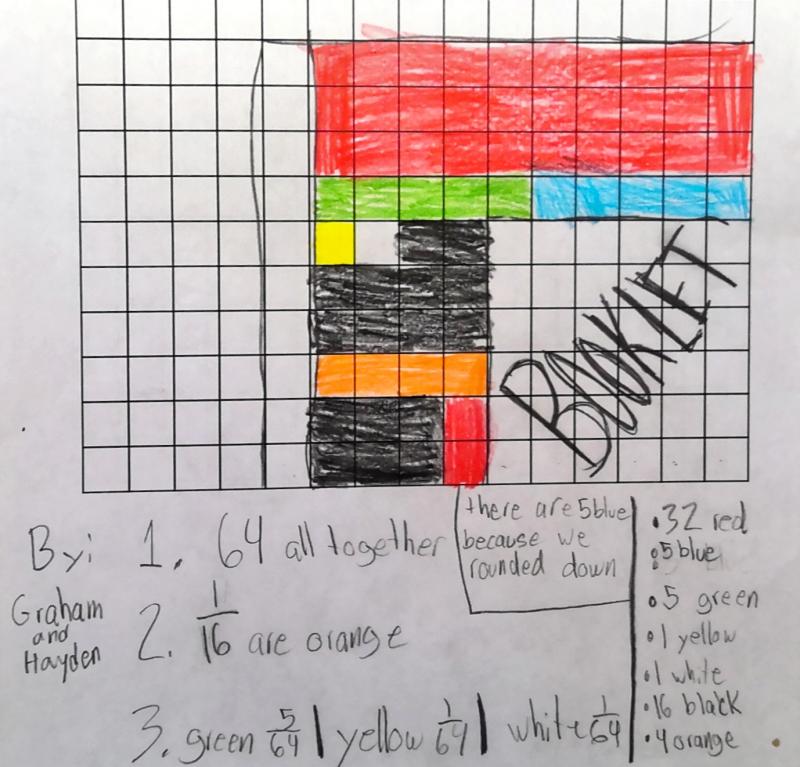 BOOKLET
By: 1. 64 all together
Graham
and
Hayden
2. 1/16 are orange
3. green 5/64 | yellow 1/64 | white 1/64
there are 5 blue
because we
rounded down
• 32 red
• 5 blue
• 5 green
• 1 yellow
• 1 white
• 16 black
• 4 orange